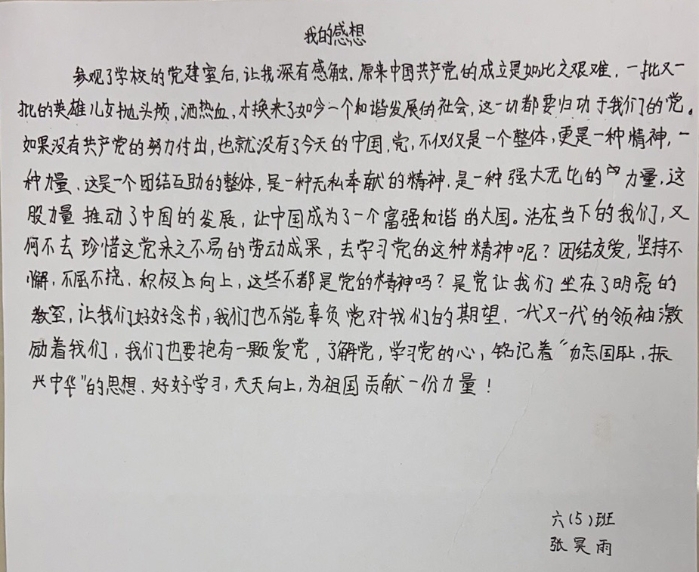 我的感想
参观了学校的党建室后，让我深有感触，原来中国共产党的成立是如此之艰难，一批又一
批的英雄儿女抛头颅，洒热血，才换来了如今一个和谐发展的社会，这一切都要归功于我们的党。
如果没有共产党的努力付出，也就没有了今天的中国，党，不仅仅是一个整体，更是一种精神，一
种力量，这是一个团结互助的整体，是一种无私奉献的精神，是一种强大无比的力量，这
股力量推动了中国的发展，让中国成为了一个富强和谐的大国。活在当下的我们，又
何不去珍惜这党来之不易的劳动成果，去学习党的这种精神呢？团结友爱，坚持不
懈，不屈不挠，积极上向上，这些不都是党的精神吗？是党让我们坐在了明亮的
教室，让我们好好念书，我们也不能辜负党对我们的期望，一代又一代的领袖激
励着我们，我们也要抱有一颗爱党，了解党，学习党的心，铭记着“勿忘国耻，振
兴中华”的思想，好好学习，天天向上，为祖国贡献一份力量！
六（5）班
张昊雨